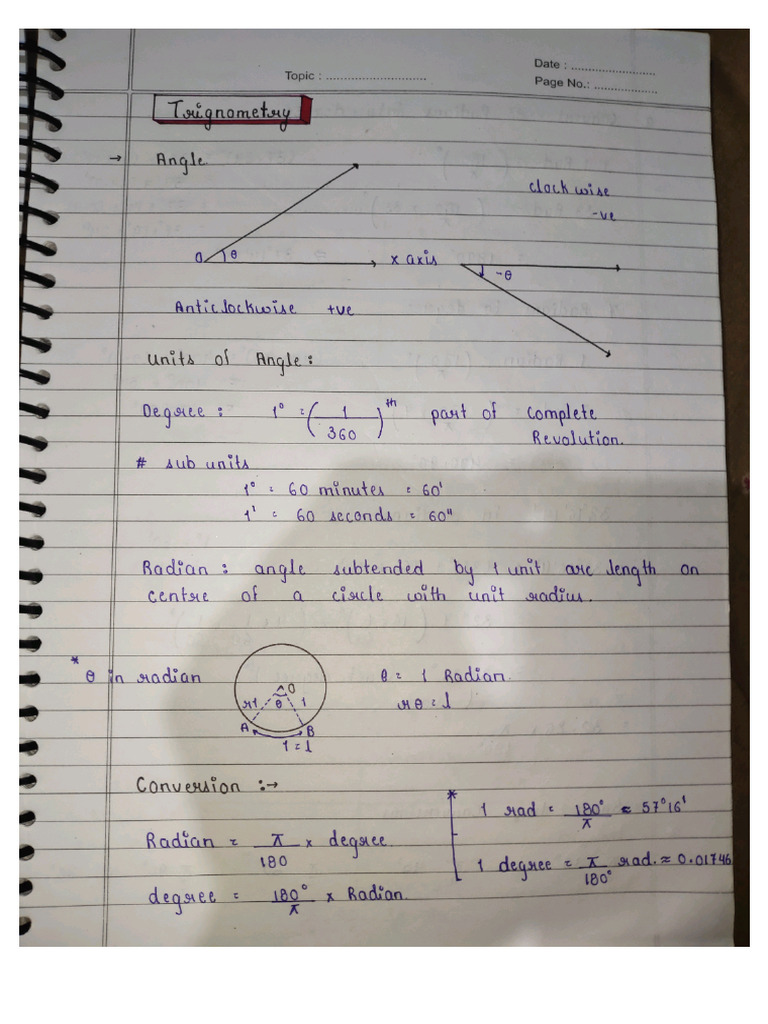 Topic : ............................
Date : ........................
Page No.: ..................
Trignometry
→ Angle
clockwise
-ve
O θ x axis -θ
Anticlockwise +ve
Units of Angle:
Degree : 1° = (1/360)th part of complete
Revolution.
# sub units
1° = 60 minutes = 60'
1' = 60 seconds = 60"
Radian : angle subtended by 1 unit arc length on
centre of a circle with unit radius.
* θ in radian
O
r1 θ 1
A B
1 = l
θ = 1 Radian.
rθ = l
Conversion :→
* 1 rad = 180°/π ≈ 57°16'
Radian = π/180 x degree.
1 degree = π/180° rad. ≈ 0.01746
degree = 180°/π x Radian.